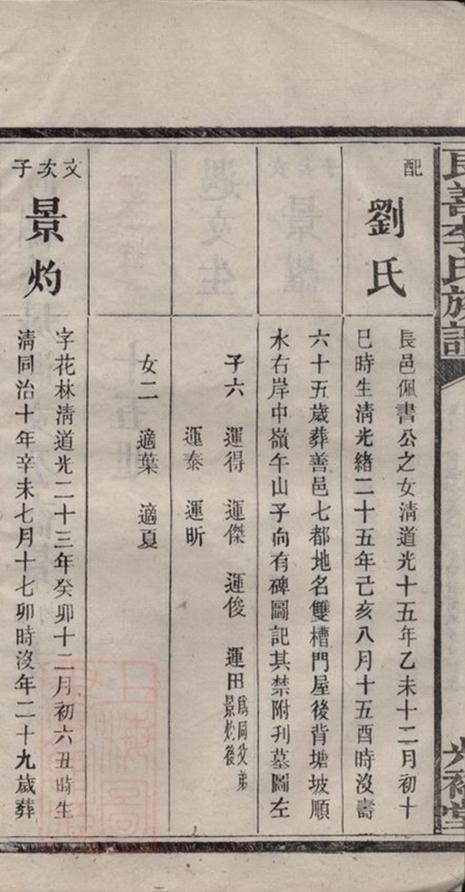 配
劉氏
長邑佩書公之女淸道光十五年乙未十二月初十
巳時生淸光緒二十五年己亥八月十五酉時沒壽
六十五歲葬善邑七都地名雙槽門屋後背塘坡順
水右岸中嶺午山子向有碑圖記其禁附刊墓圖左
子六 運得 運傑 運俊 運田爲同父弟
景灼後
運泰 運昕
女二 適葉 適夏
文次子
景灼
字花林淸道光二十三年癸卯十二月初六丑時生
淸同治十年辛未七月十七卯時沒年二十九歲葬